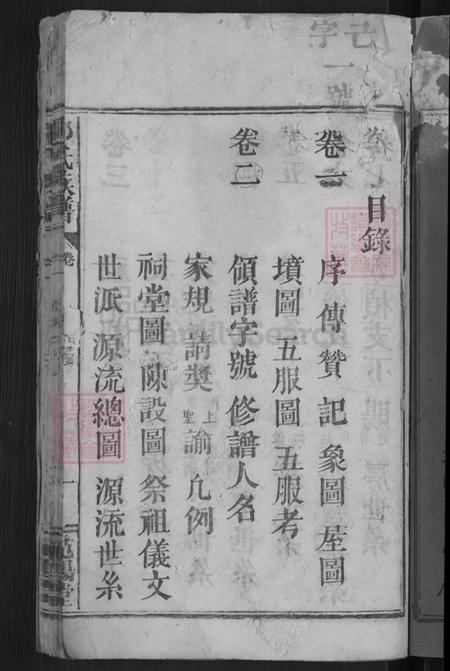 目錄
卷一 序 傳 贊 記 象圖 茔圖
墳圖 五服圖 五服考
領譜字號 修譜人名
卷二
家規 請奬 聖上諭 凡例
祠堂圖 陳設圖 祭祖儀文
世派 源流總圖 源流世系
氏族譜
卷
FamilySearch